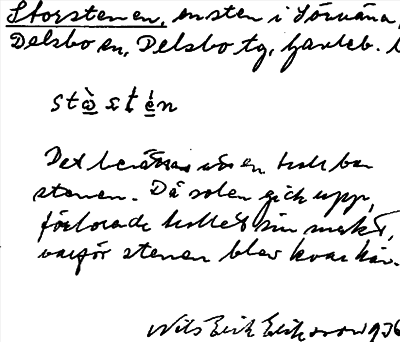 Storstenen, en sten i Sörvåna,
Delsbo sn, Delsbo tg, Gävleb. l
stὰ s t é n
Det berättas att en troll bar
stenen. Då solen gick upp,
förlorade trollet sin makt,
varför stenen blev kvar här.
Nils Erik Eriksson 1936